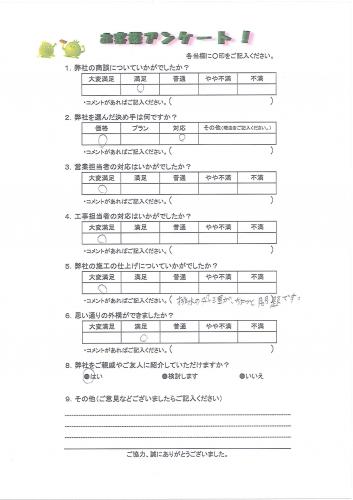 お客様アンケート！
各当欄に〇印をご記入ください。
1．弊社の商談についていかがでしたか？
大変満足 満足 普通 やや不満 不満
・コメントがあればご記入ください。(　)
2．弊社を選んだ決め手は何ですか？
価格 プラン 対応 その他(理由をご記入ください。)
・コメントがあればご記入ください。(　)
3．営業担当者の対応はいかがでしたか？
大変満足 満足 普通 やや不満 不満
・コメントがあればご記入ください。(　)
4．工事担当者の対応はいかがでしたか？
大変満足 満足 普通 やや不満 不満
・コメントがあればご記入ください。(　)
5．弊社の施工の仕上げについていかがでしたか？
大変満足 満足 普通 やや不満 不満
・コメントがあればご記入ください。( 排水の 問題です。
6．思い通りの外構ができましたか？
大変満足 満足 普通 やや不満 不満
・コメントがあればご記入ください。(　)
8．弊社をご親戚やご友人に紹介していただけますか？
●はい ●検討します ●いいえ
9．その他(ご意見などございましたらご記入ください)
ご協力、誠にありがとうございました。